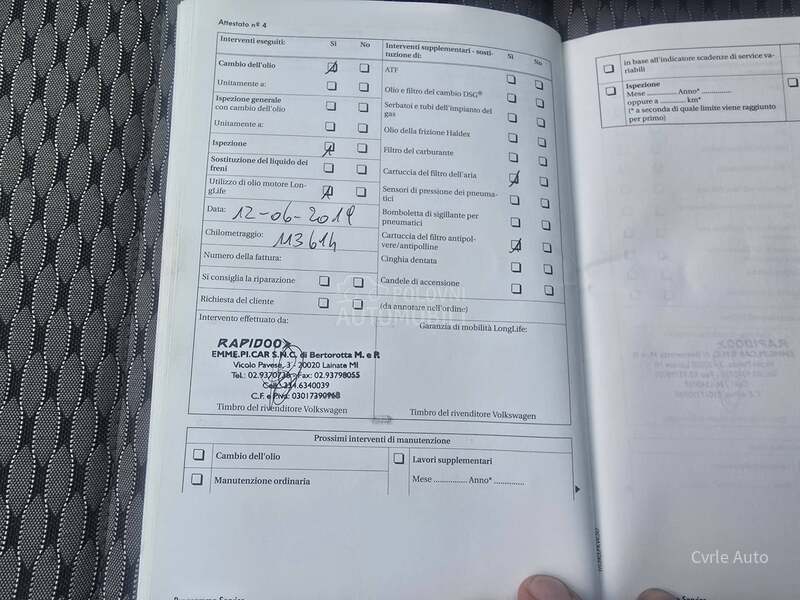 Attestato nº 4
Interventi eseguiti: Sì No
Cambio dell'olio
Unitamente a:
Ispezione generale
con cambio dell'olio
Unitamente a:
Ispezione
Sostituzione del liquido dei
freni
Utilizzo di olio motore Lon-
gLife
Data: 12-06-2019
Chilometraggio: 113614
Numero della fattura:
Si consiglia la riparazione
Richiesta del cliente
Intervento effettuato da:
RAPIDOO
EMME.PI.CAR S.N.C. di Bertorotta M. e P.
Vicolo Pavese, 3 - 20020 Lainate MI
Fax: 02.93798055
Cell.: 334.6340039
C.F. e P.iva: 03017390968
Timbro del rivenditore Volkswagen
Interventi supplementari - sosti-
tuzione di: Sì No
ATF
Olio e filtro del cambio DSG®
Serbatoi e tubi dell'impianto del
gas
Olio della frizione Haldex
Filtro del carburante
Cartuccia del filtro dell'aria
Sensori di pressione dei pneuma-
tici
Bomboletta di sigillante per
pneumatici
Cartuccia del filtro antipol-
vere/antipolline
Cinghia dentata
Candele di accensione
(da annotare nell'ordine)
Garanzia di mobilità LongLife:
Timbro del rivenditore Volkswagen
POLOVNI
AUTOMOBILI
Prossimi interventi di manutenzione
Cambio dell'olio
Manutenzione ordinaria
Lavori supplementari
Mese ............... Anno* ...............
in base all'indicatore scadenze di service va-
riabili
Ispezione
Mese ............... Anno* ...............
oppure a ............ km*
(* a seconda di quale limite viene raggiunto
per primo)
Cvrle Auto